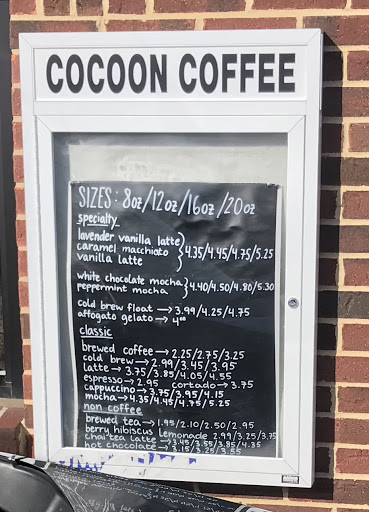 COCOON COFFEE
SIZES: 8oz/12oz/16oz/20oz
specialty
lavender vanilla latte
caramel macchiato } 4.35/4.45/4.75/5.25
vanilla latte
white chocolate mocha
peppermint mocha } 4.40/4.50/4.80/5.30
cold brew float → 3.99/4.25/4.75
affogato gelato → 4⁰⁰
classic
brewed coffee → 2.25/2.75/3.25
cold brew → 2.99/3.45/3.95
latte → 3.75/3.85/4.05/4.55
espresso → 2.95 cortado → 3.75
cappuccino → 3.75/3.95/4.15
mocha → 4.35/4.45/4.75/5.25
non coffee
brewed tea → 1.95/2.10/2.50/2.95
berry hibiscus Lemonade 2.99/3.25/3.75
chai tea latte → 3.45/3.55/3.85/4.35
hot chocolate → 3.15/3.25/3.55